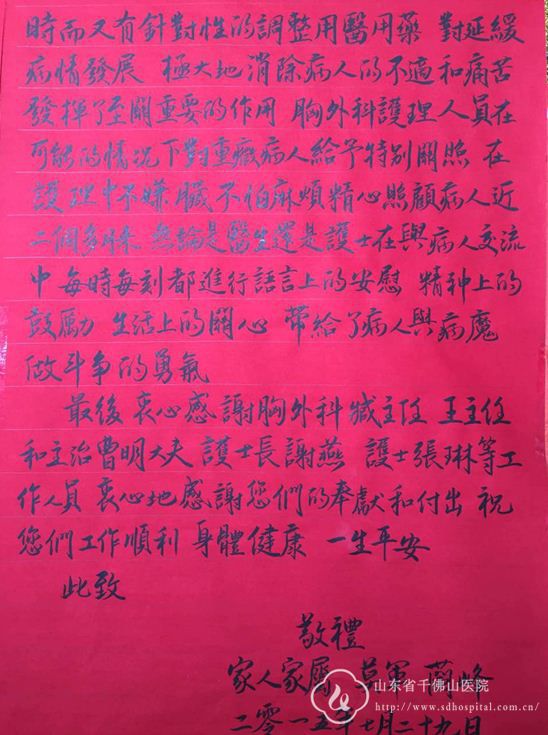 時而又有針對性的調整用醫用藥 對延緩
病情發展 極大地消除病人的不適和痛苦
發揮了至關重要的作用 胸外科護理人員在
可能的情况下對重癥病人給予特别關照 在
護理中不嫌臟不怕麻煩精心照顧病人近
二個多月來 無論是醫生還是護士在與病人交流
中每時每刻都進行語言上的安慰 精神上的
鼓勵 生活上的關心 帶給了病人與病魔
做斗争的勇氣
最後衷心感謝胸外科臧主任 王主任
和主治曹明大夫 護士長謝燕 護士張琳等工
作人員 衷心地感謝您們的奉獻和付出 祝
您們工作順利 身體健康 一生平安
此致
敬禮
家人家屬 莫軍 蘭峰
二零一五年七月二十九日
山东省千佛山医院
http://www.sdhospital.com.cn/